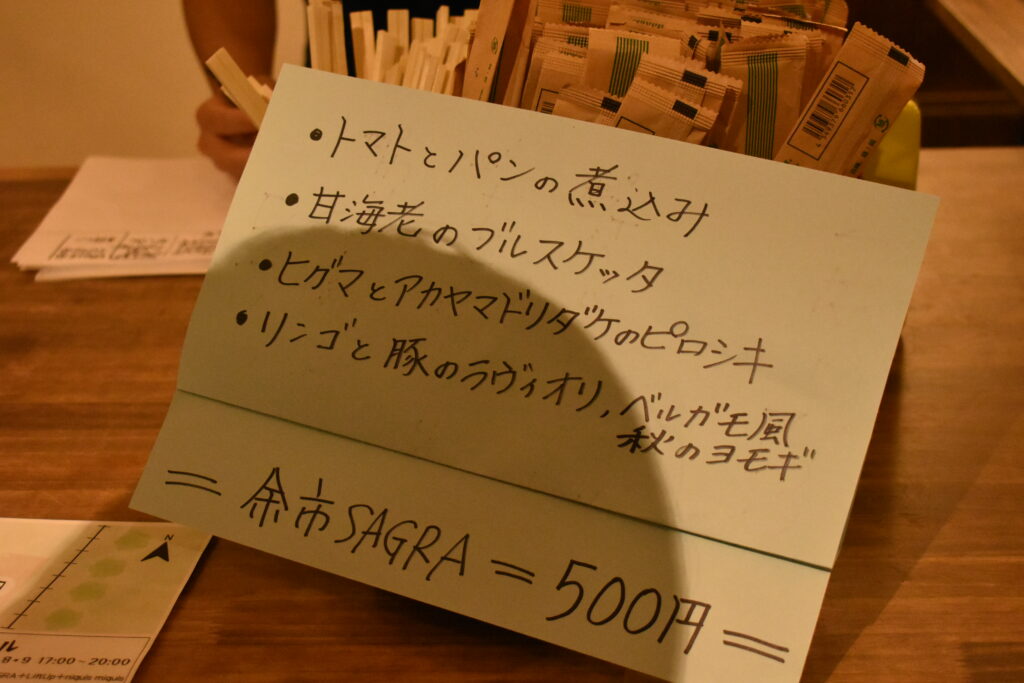 ・トマトとパンの煮込み
・甘海老のブルスケッタ
・ヒグマとアカヤマドリダケのピロシキ
・リンゴと豚のラヴィオリ，ベルガモ風
秋のヨモギ
＝余市SAGRA＝500円＝
N
ル
8+9 17:00～20:00
GRA+LiftUp+niquis miquis